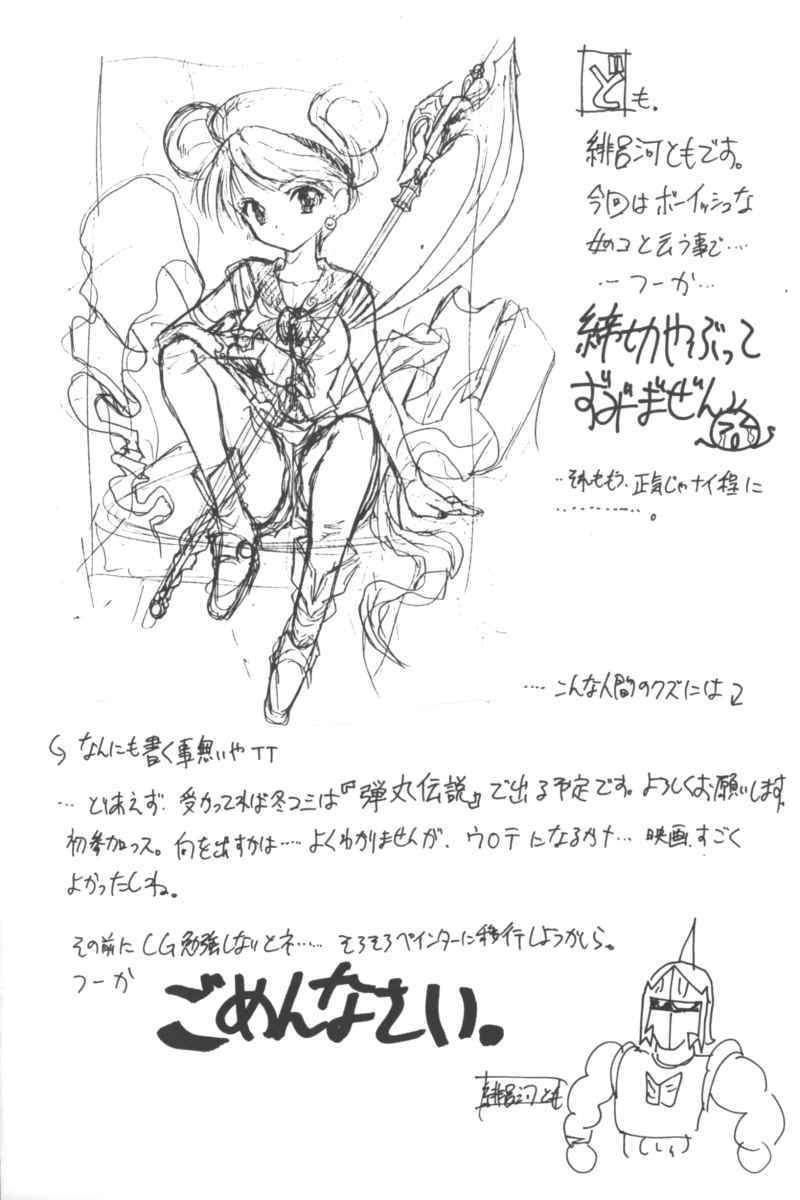 ども。
緋呂河ともです。
今回はボーイッシュな
女のコと云う事で‥‥
‥つーか‥
締切やぶって
ずみ゛まぜん
‥それももう、正気じゃナイ程に
‥‥‥‥‥。
‥‥こんな人間のクズには
なんにも書く事無いやTT
‥とりあえず、受かってれば冬コミは『弾丸伝説』で出る予定です。よろしくお願いします
初参加っス。何を出すかは‥‥よくわかりませんが、ウ〇テになるかナ‥映画、すごく
よかったしね。
その前にCG勉強しないとネ‥‥そろそろペインターに移行しようかしら。
つーか
ごめんなさい。
緋呂河とも